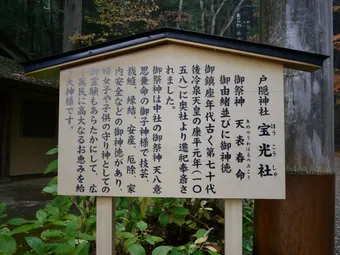 戸隠神社 宝光社
ほうこうしゃ
御祭神 天表春命
あめのうわはるのみこと
御由緒並びに御神徳
御鎮座年代古く第七十代
後冷泉天皇の康平元年(一〇
五八)に奥社より遷祀奉斎さ
れました。
御祭神は中社の御祭神 天八意
思兼命の御子神様で技芸、
裁縫、縁結、安産、厄除、家
内安全などの御神徳があり、
婦女子や子供の守り神としての
御霊験もあらたかにして、広
く万民に高大なる お恵みを給う
大神様です。